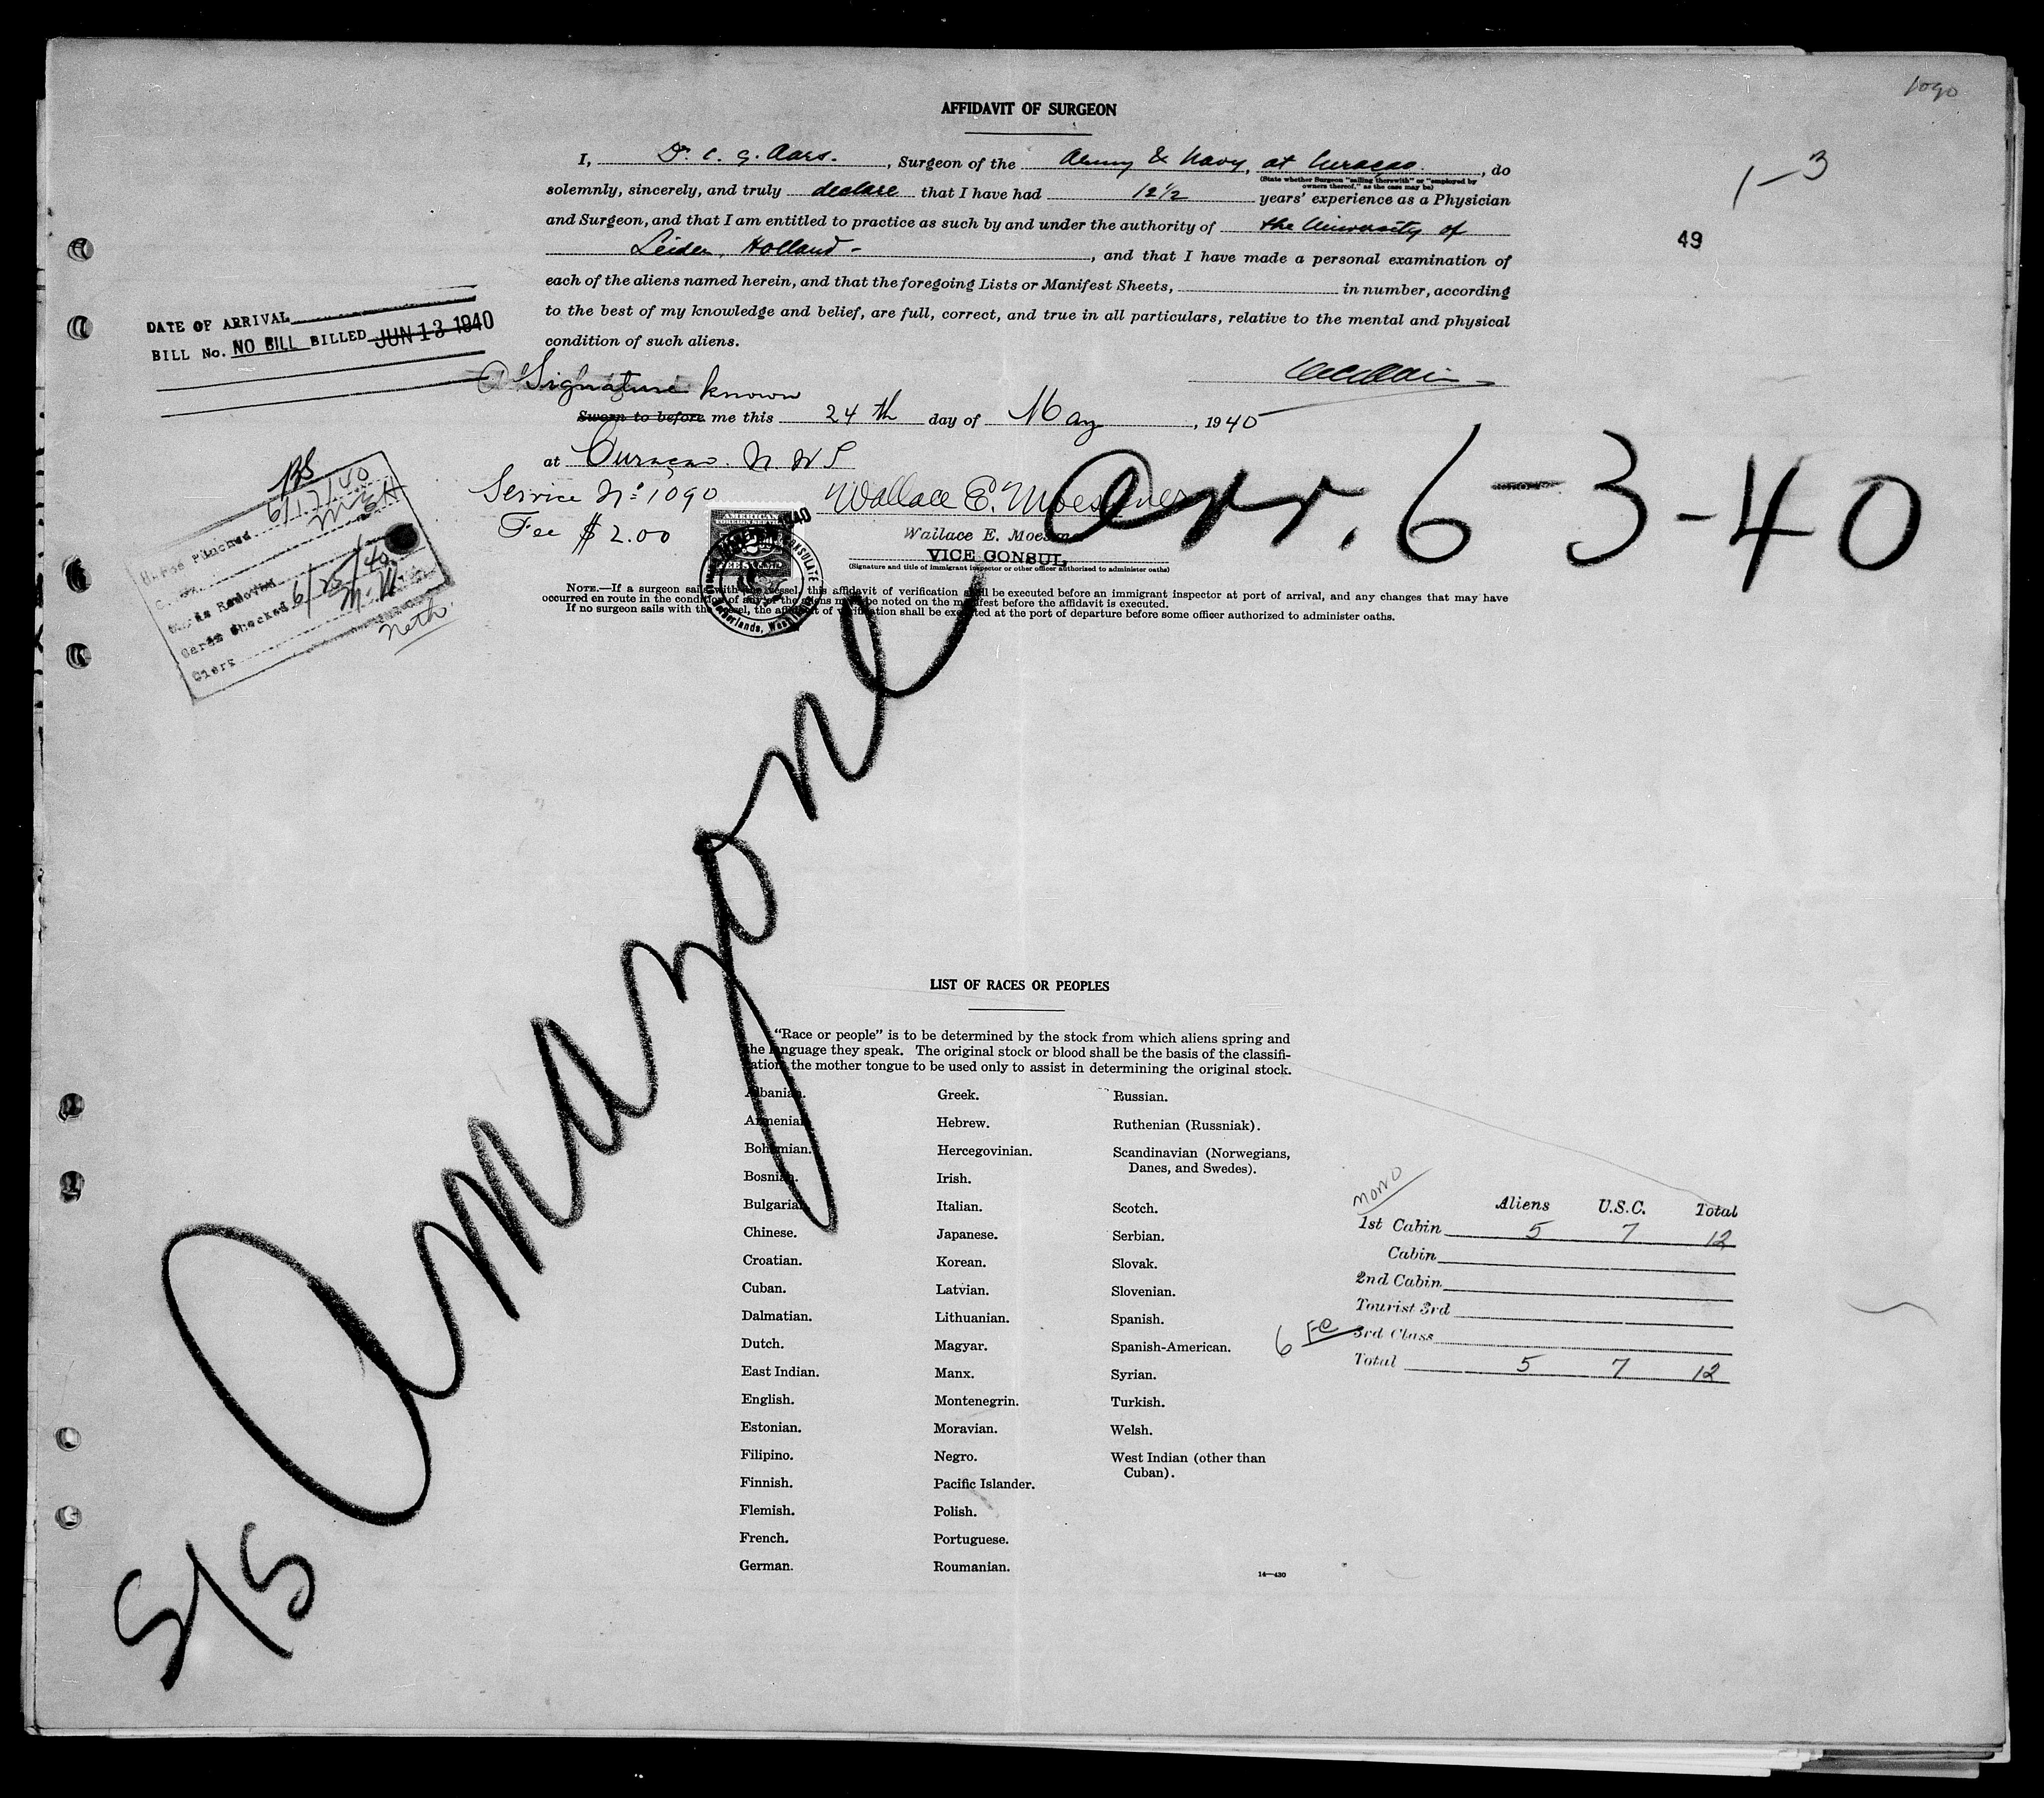 1090
AFFIDAVIT OF SURGEON
1-3
I, Dr. C. G. Aars. , Surgeon of the Army & Navy, at Curaçao. , do
(State whether Surgeon "sailing therewith" or "employed by
owners thereof," as the case may be)
solemnly, sincerely, and truly declare that I have had 12½ years' experience as a Physician
and Surgeon, and that I am entitled to practice as such by and under the authority of the University of
49
Leiden, Holland - , and that I have made a personal examination of
each of the aliens named herein, and that the foregoing Lists or Manifest Sheets, in number, according
to the best of my knowledge and belief, are full, correct, and true in all particulars, relative to the mental and physical
condition of such aliens.
DATE OF ARRIVAL
BILL No. NO BILL BILLED JUN 13 1940
Signature known
Sworn to before me this 24th day of May , 1940
at Curaçao. N W I
Service No. 1090
Fee $ 2.00
Wallace E. Moessner
Wallace E. Moessner
VICE CONSUL
(Signature and title of immigrant inspector or other officer authorized to administer oaths)
arr. 6-3-40
AMERICAN
FOREIGN SERVICE
FEE STAMP
BS
Cards Punched 6/17/40
Cards Removed
Cards Checked 6/25/40
Clerk
Neth
NOTE.—If a surgeon sails with the vessel, this affidavit of verification shall be executed before an immigrant inspector at port of arrival, and any changes that may have
occurred en route in the condition of any of the aliens must be noted on the manifest before the affidavit is executed.
If no surgeon sails with the vessel, the affidavit of verification shall be executed at the port of departure before some officer authorized to administer oaths.
S/S Amazone
LIST OF RACES OR PEOPLES
"Race or people" is to be determined by the stock from which aliens spring and
the language they speak. The original stock or blood shall be the basis of the classifi-
cation, the mother tongue to be used only to assist in determining the original stock.
Albanian.
Armenian.
Bohemian.
Bosnian.
Bulgarian.
Chinese.
Croatian.
Cuban.
Dalmatian.
Dutch.
East Indian.
English.
Estonian.
Filipino.
Finnish.
Flemish.
French.
German.
Greek.
Hebrew.
Hercegovinian.
Irish.
Italian.
Japanese.
Korean.
Latvian.
Lithuanian.
Magyar.
Manx.
Montenegrin.
Moravian.
Negro.
Pacific Islander.
Polish.
Portuguese.
Roumanian.
Russian.
Ruthenian (Russniak).
Scandinavian (Norwegians,
Danes, and Swedes).
Scotch.
Serbian.
Slovak.
Slovenian.
Spanish.
Spanish-American.
Syrian.
Turkish.
Welsh.
West Indian (other than
Cuban).
14—430
Aliens U.S.C. Total
1st Cabin 5 7 12
Cabin
2nd Cabin
Tourist 3rd
6 FC 3rd Class
Total 5 7 12